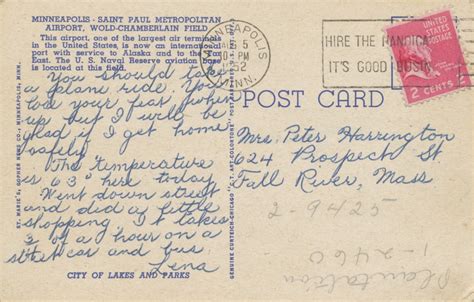 MINNEAPOLIS - SAINT PAUL METROPOLITAN
AIRPORT, WOLD-CHAMBERLAIN FIELD
This airport, one of the largest air terminals
in the United States, is now an international
port with service to Alaska and to the Far
East. The U. S. Naval Reserve aviation base
is located at this field.
You should take
a plane ride. You
lose your fear when
up but I will be
glad if I get home
safely.
The temperature
is 63° here today
Went down street
and did a little
shopping. I takes
½ of a hour on a
street car and bus
Lena
CITY OF LAKES AND PARKS
ST. MARIE'S GOPHER NEWS CO., MINNEAPOLIS, MINN.
GENUINE CURTEICH-CHICAGO "C. T. ART-COLORTONE" POST CARD
MINNEAPOLIS
5
PM
52
MINN.
HIRE THE HANDICA
IT'S GOOD BUSIN
2 CENTS 2
POST CARD
Mrs. Peter Harrington
624 Prospect St.
Fall River, Mass
2-9425
1-2460
Plantation